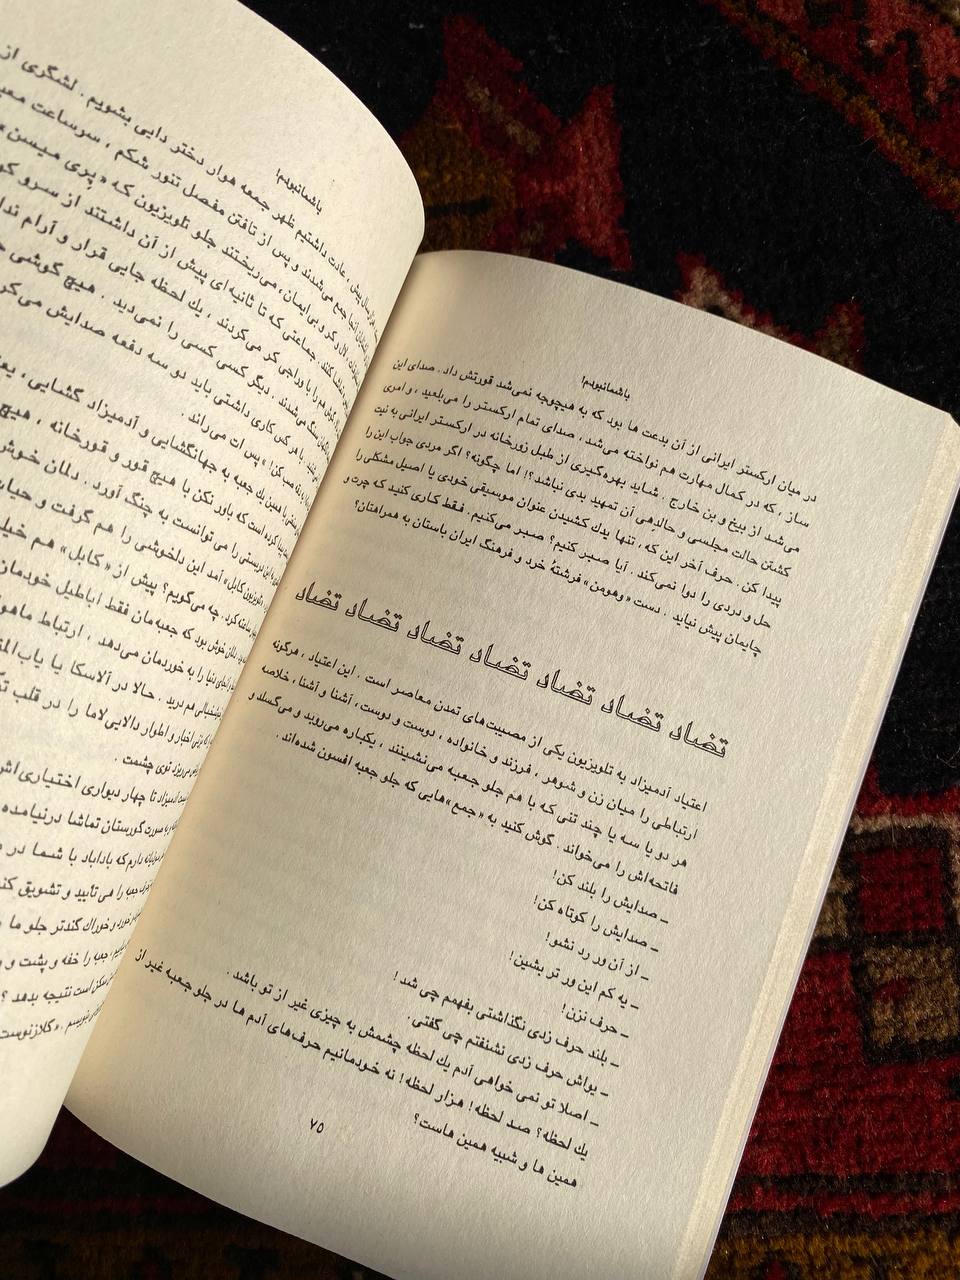 باشمانبودم!
در میان ارکستر ایرانی از آن بدعت ها بود که به هیچوجه نمی‌شد قورتش داد. صدای این
ساز، که در کمال مهارت هم نواخته می‌شد، صدای تمام ارکستر را می‌بلعید، و امری
می‌شد از بیخ و بن خارج. شاید بهره‌گیری از طبل زورخانه در ارکستر ایرانی به نیت
کشتن حالت مجلسی و حالدِهی آن تمهید بدی نباشد؟! اما چگونه؟ اگر مردی جواب این را
پیدا کن. حرف آخر این که، تنها یدك کشیدن عنوان موسیقی خودی یا اصیل مشکلی را
حل و دردی را دوا نمی‌کند. آیا صبر کنیم؟ صبر می‌کنیم. فقط کاری کنید که چرت و
چایمان پیش نیاید. دست «وهومن» فرشتهٔ خرد و فرهنگ ایران باستان به همراهتان؟
تضاد تضاد تضاد تضاد تضاد تضاد تضاد
اعتیاد آدمیزاد به تلویزیون یکی از مصیبت‌های تمدن معاصر است. این اعتیاد، هرگونه
ارتباطی را میان زن و شوهر، فرزند و خانواده، دوست و دوست، آشنا و آشنا، خلاصه
هر دو یا سه یا چند تنی که با هم جلو جعبه می‌نشینند، یکباره می‌روبد و می‌گسلد و
فاتحه‌اش را می‌خواند. گوش کنید به «جمع»هایی که جلو جعبه افسون شده‌اند.
ـ صدایش را بلند کن!
ـ صدایش را کوتاه کن!
ـ از آن ور رد نشو!
ـ یه کم این ور تر بشین!
ـ حرف نزن!
ـ بلند حرف زدی نگذاشتی بفهمم چی شد!
ـ یواش حرف زدی نشنفتم چی گفتی.
ـ اصلا تو نمی خواهی آدم یك لحظه چشمش به چیزی غیر از تو باشد.
یك لحظه؟ صد لحظه! هزار لحظه! نه خودمانیم حرف‌های آدم ها در جلو جعبه غیر از
همین ها و شبیه همین هاست؟
۷۵
باشمانبودم!
پیش، عادت داشتیم ظهر جمعه هوار دختر دایی بشویم. لشگری از
جمع می‌شدند و پس از تافتن مفصل تنور شکم، سرساعت
لال و کر و بی‌ایمان، می‌ریختند جلو تلویزیون که «پری میسن»
جماعتی که تا ثانیه ای پیش از آن داشتند از سرو
گوش هم را با وراجی کر می‌کردند، یك لحظه جایی قرار و آرام
سنگ می‌شدند. دیگر کسی کسی را نمی‌دید. هیچ گوشی
با هر کس کاری داشتی باید دو سه دفعه صدایش
پس ات می‌راند.
یك جعبه به جهانگشایی و آدمیزاد گشایی،
است که باور نکن با هیچ قور و قورخانه، هیچ
را می‌توانست به چنگ آورد. دلمان خوش
آمد این دلخوشی را هم گرفت و
چه می‌گویم؟ پیش از «کابل» هم
دلمان خوش بود که جعبه‌مان فقط اباطیل خودمان
دنیا را به خوردمان می‌دهد، ارتباط
هم درید. حالا در آلاسکا یا
اخبار و اطوار دالایی‌لاما را در قلب
می‌ریزد توی چشمت.
آدمیزاد تا چهار دیواری اختیاری
به صورت گورستان تماشا درنیامده
دارم که باداباد با شما در
جعبه را می تأیید و تشویق
خورد و خوراك گندتر جلو ما
جعبه را خفه و پشت و
است نتیجه بدهد؟